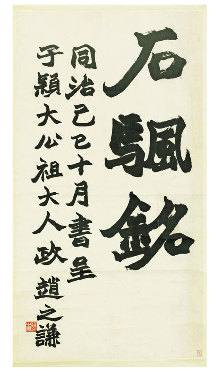 石颿銘
同治己巳十月書呈
子穎大公祖大人政趙之謙